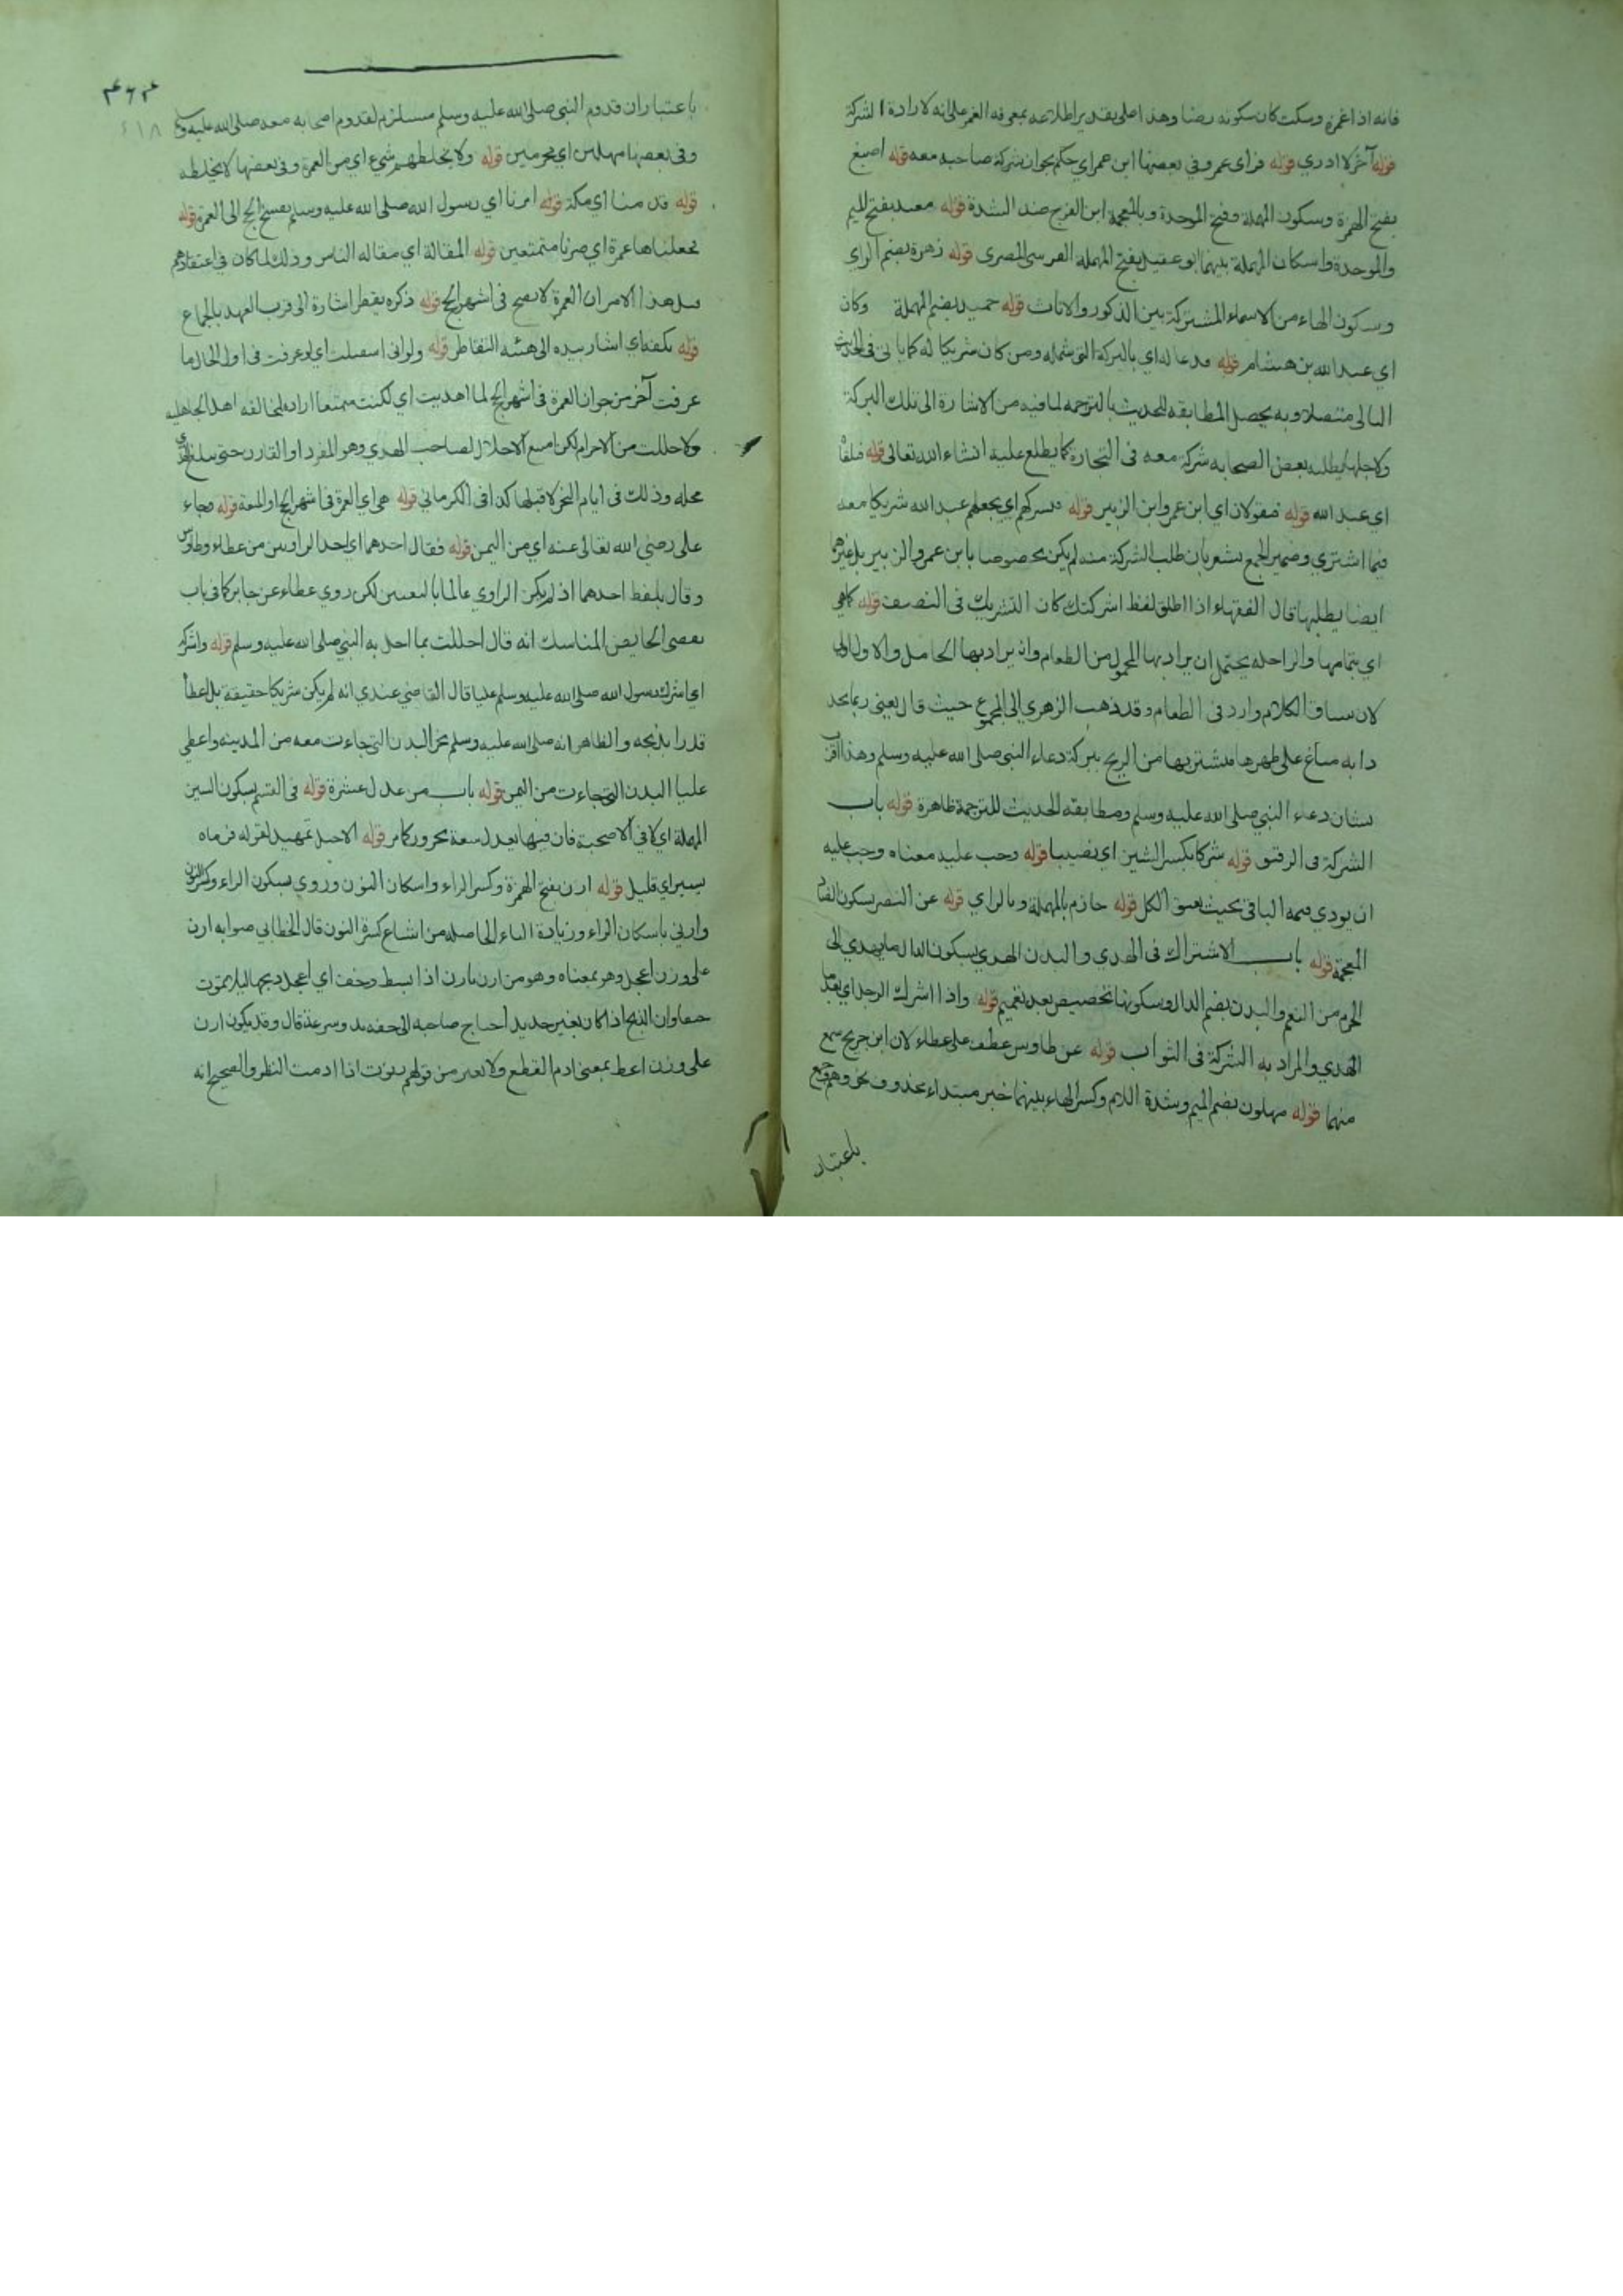 فانه اذا غمزه وسكت كان سكوته رضا وهذا اصلي بقدير اطلاعه بمعرفه الغمز على انه لارادة الشركة
قوله آخر لا ادري قوله فراى عمر وفي بعضها ابن عمر اي حكم بجواز شركة صاحبه معه قوله اصبغ
بفتح الهمزة وسكون المهملة وفتح الموحدة وبالمعجمة ابن الفرج ضد الشدة قوله معبد بفتح الميم
والموحدة واسكان المهملة بينهما ابو عقيل بفتح المهملة القرسى المصرى قوله زهرة بضم الزاي
وسكون الهاء من الاسماء المشتركة بين الذكور والاناث قوله حميد بضم المهملة وكان
اي عبد الله بن هشام قوله فدعا له اي بالبركة التى شمله ومن كان شريكا له كما ياتى فى الحديث
التالى متصلا وبه يحصل المطابقه للحديث بالترجمه لما فيه من الاشارة الى تلك البركة
ولاجلها يطلبه بعض الصحابه شركة معه فى التجارة كما يطلع عليه انشاء الله تعالى قوله فيلقاه
اي عبد الله قوله فيقولان اي ابن عمر وابن الزبير قوله فيسركهم اي يجعلهم عبد الله شريكا معه
فيما اشترى وضمير الجمع يشعر بان طلب الشركة منه لم يكن مخصوصا بابن عمر والزبير بل غيرهما
ايضا يطلبها قال الفقهاء اذا اطلق لفظ اشركتك كان التشريك فى النصف قوله كما هي
اي بتمامها والراحله يحتمل ان يراد بها المحمول من الطعام وان يراد بها الحامل والاول اولى
لان سياق الكلام وارد فى الطعام وقد ذهب الزهري الى المجموع حيث قال يعنى ربما يجد
دابه متاع على ظهرها فيشتريها من الربح ببركة دعاء النبى صلى الله عليه وسلم وهذا اقرب
بشان دعاء النبى صلى الله عليه وسلم ومطابقه الحديث للترجمة ظاهرة قوله باب
الشركة فى الرقيق قوله شركا بكسر الشين اي نصيبا قوله وجب عليه معناه وجب عليه
ان يودي قيمه الباقى بحيث يعتق الكل قوله حازم بالمهملة وبالزاي قوله عن النضر بسكون الضاد
المعجمة قوله باب الاشتراك فى الهدي والبدن الهدي بسكون الدال ما يهدي الى
الحرم من النعم والبدن بضم الدال وسكونها تخصيص بعد تعميم قوله واذا اشرك الرجل اي بعد ما
الهدي والمراد به الشركة فى الثواب قوله عن طاوس عطف على عطاء لان ابن جريج سمع
منهما قوله مهلون بضم الميم وشدة اللام وكسر الهاء بينهما خبر مبتداء محذوف نحو وهم جمع
باعتبار
باعتبار ان قدوم النبى صلى الله عليه وسلم مستلزم لقدوم اصحابه معه صلى الله عليه وسلم
وفى بعضها مهلين اي محرمين قوله ولا يخلطهم شيء اي من العمرة وفى بعضها لا يخلطه
قوله قدمنا اي مكة قوله امرنا اي رسول الله صلى الله عليه وسلم بفسخ الحج الى العمرة قوله
فجعلناها عمرة اي صرنا متمتعين قوله المقالة اي مقاله الناس وذلك لما كان في اعتقادهم
هذا الامر ان العمرة لا يصح فى اشهر الحج قوله ذكره يقطر اشارة الى قرب العهد بالجماع
قوله بكفه اي اشار بيده الى هيئه التقاطر قوله ولو انى استقبلت اي لو عرفت فى اول الحال ما
عرفت آخر من جواز العمرة فى اشهر الحج لما اهديت اي لكنت متمتعا اراده لمخالفه اهل الجاهليه
ولاحللت من الاحرام لكن امتنع الاحلال لصاحب الهدي وهو المفرد او القارن حتى يبلغ الهدي
محله وذلك فى ايام النحر لا قبلها كذا فى الكرماني قوله هى اي العمرة فى اشهر الحج او المتعة قوله وجاء
على رضي الله تعالى عنه اي من اليمن قوله فقال احدهما اي احد الراويين من عطاء وطاوس
وقال بلفظ احدهما اذ لم يكن الراوي عالما بالتعيين لكن روي عطاء عن جابر كما فى باب
تقضى الحايض المناسك انه قال احللت بما احل به النبي صلى الله عليه وسلم قوله واشركه
اي اشرك رسول الله صلى الله عليه وسلم عليا قال القاضي عندي انه لم يكن شريكا حقيقة بل اعطاه
قدرا يذبحه والظاهر انه صلى الله عليه وسلم نحر البدن التى جاءت معه من المدينه واعطى
عليا البدن التى جاءت من اليمن قوله باب من عدل عشرة قوله فى القسم بسكون السين
المهملة اي لا في الاضحية فان فيها يعدل سبعة بجزور كما مر قوله الاحبل تمهيد لقوله فرماه
يسير اي قليل قوله ارن بفتح الهمزة وكسر الراء واسكان النون وروي بسكون الراء وكسر النون
وارني باسكان الراء وزيادة الياء الحاصله من اشباع كسرة النون قال الخطابي صوابه ارن
على وزن اعجل وهو بمعناه وهو من ارن يارن اذا نشط وخف اي اعجل ذبحها لئلا يموت
خنقا وان الذبح اذا كان بغير حديد احتاج صاحبه الى خفه يد وسرعة قال وقد يكون ارن
على وزن اعط بمعنى ادم القطع ولا تفتر من قولهم رنوت اذا ادمت النظر والصحيح انه